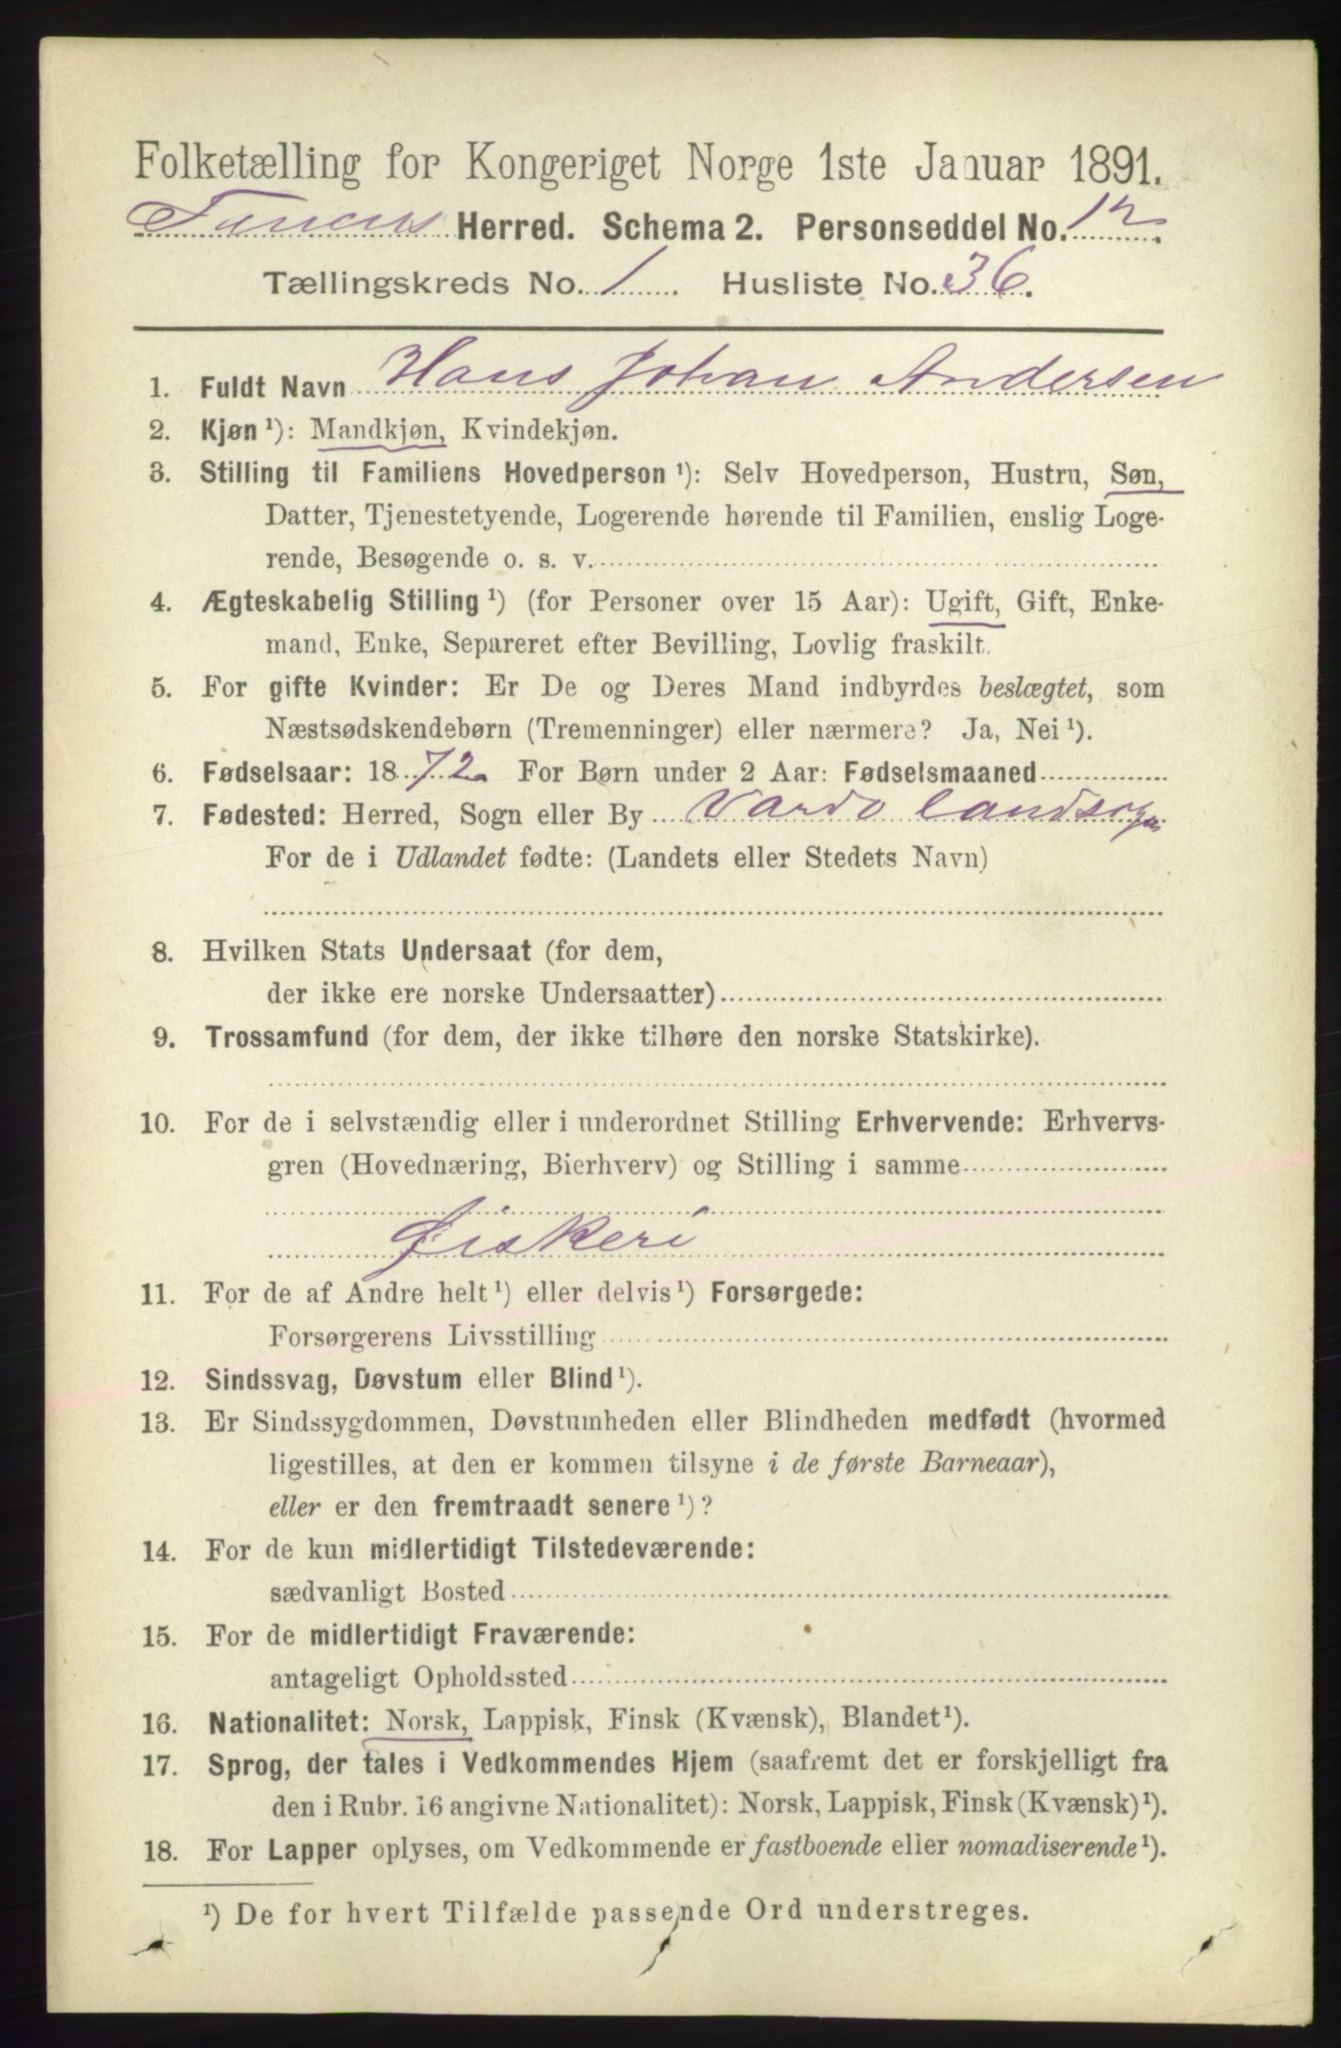 Folketælling for Kongeriget Norge 1ste Januar 1891.
Tanens Herred. Schema 2. Personseddel No. 12.
Tællingskreds No. 1. Husliste No. 36.
1. Fuldt Navn Hans Johan Andersen
2. Kjøn ¹): Mandkjøn, Kvindekjøn.
3. Stilling til Familiens Hovedperson ¹): Selv Hovedperson, Hustru, Søn,
Datter, Tjenestetyende, Logerende hørende til Familien, enslig Loge-
rende, Besøgende o. s. v.
4. Ægteskabelig Stilling ¹) (for Personer over 15 Aar): Ugift, Gift, Enke-
mand, Enke, Separeret efter Bevilling, Lovlig fraskilt.
5. For gifte Kvinder: Er De og Deres Mand indbyrdes beslægtet, som
Næstsødskendebørn (Tremenninger) eller nærmere? Ja, Nei ¹).
6. Fødselsaar: 1872. For Børn under 2 Aar: Fødselsmaaned
7. Fødested: Herred, Sogn eller By Vardø landsogn
For de i Udlandet fødte: (Landets eller Stedets Navn)
8. Hvilken Stats Undersaat (for dem,
der ikke ere norske Undersaatter)
9. Trossamfund (for dem, der ikke tilhøre den norske Statskirke).
10. For de i selvstændig eller i underordnet Stilling Erhvervende: Erhvervs-
gren (Hovednæring, Bierhverv) og Stilling i samme
Fiskeri
11. For de af Andre helt ¹) eller delvis ¹) Forsørgede:
Forsørgerens Livsstilling
12. Sindssvag, Døvstum eller Blind ¹).
13. Er Sindssygdommen, Døvstumheden eller Blindheden medfødt (hvormed
ligestilles, at den er kommen tilsyne i de første Barneaar),
eller er den fremtraadt senere ¹)?
14. For de kun midlertidigt Tilstedeværende:
sædvanligt Bosted
15. For de midlertidigt Fraværende:
antageligt Opholdssted
16. Nationalitet: Norsk, Lappisk, Finsk (Kvænsk), Blandet ¹).
17. Sprog, der tales i Vedkommendes Hjem (saafremt det er forskjelligt fra
den i Rubr. 16 angivne Nationalitet): Norsk, Lappisk, Finsk (Kvænsk) ¹).
18. For Lapper oplyses, om Vedkommende er fastboende eller nomadiserende ¹).
¹) De for hvert Tilfælde passende Ord understreges.